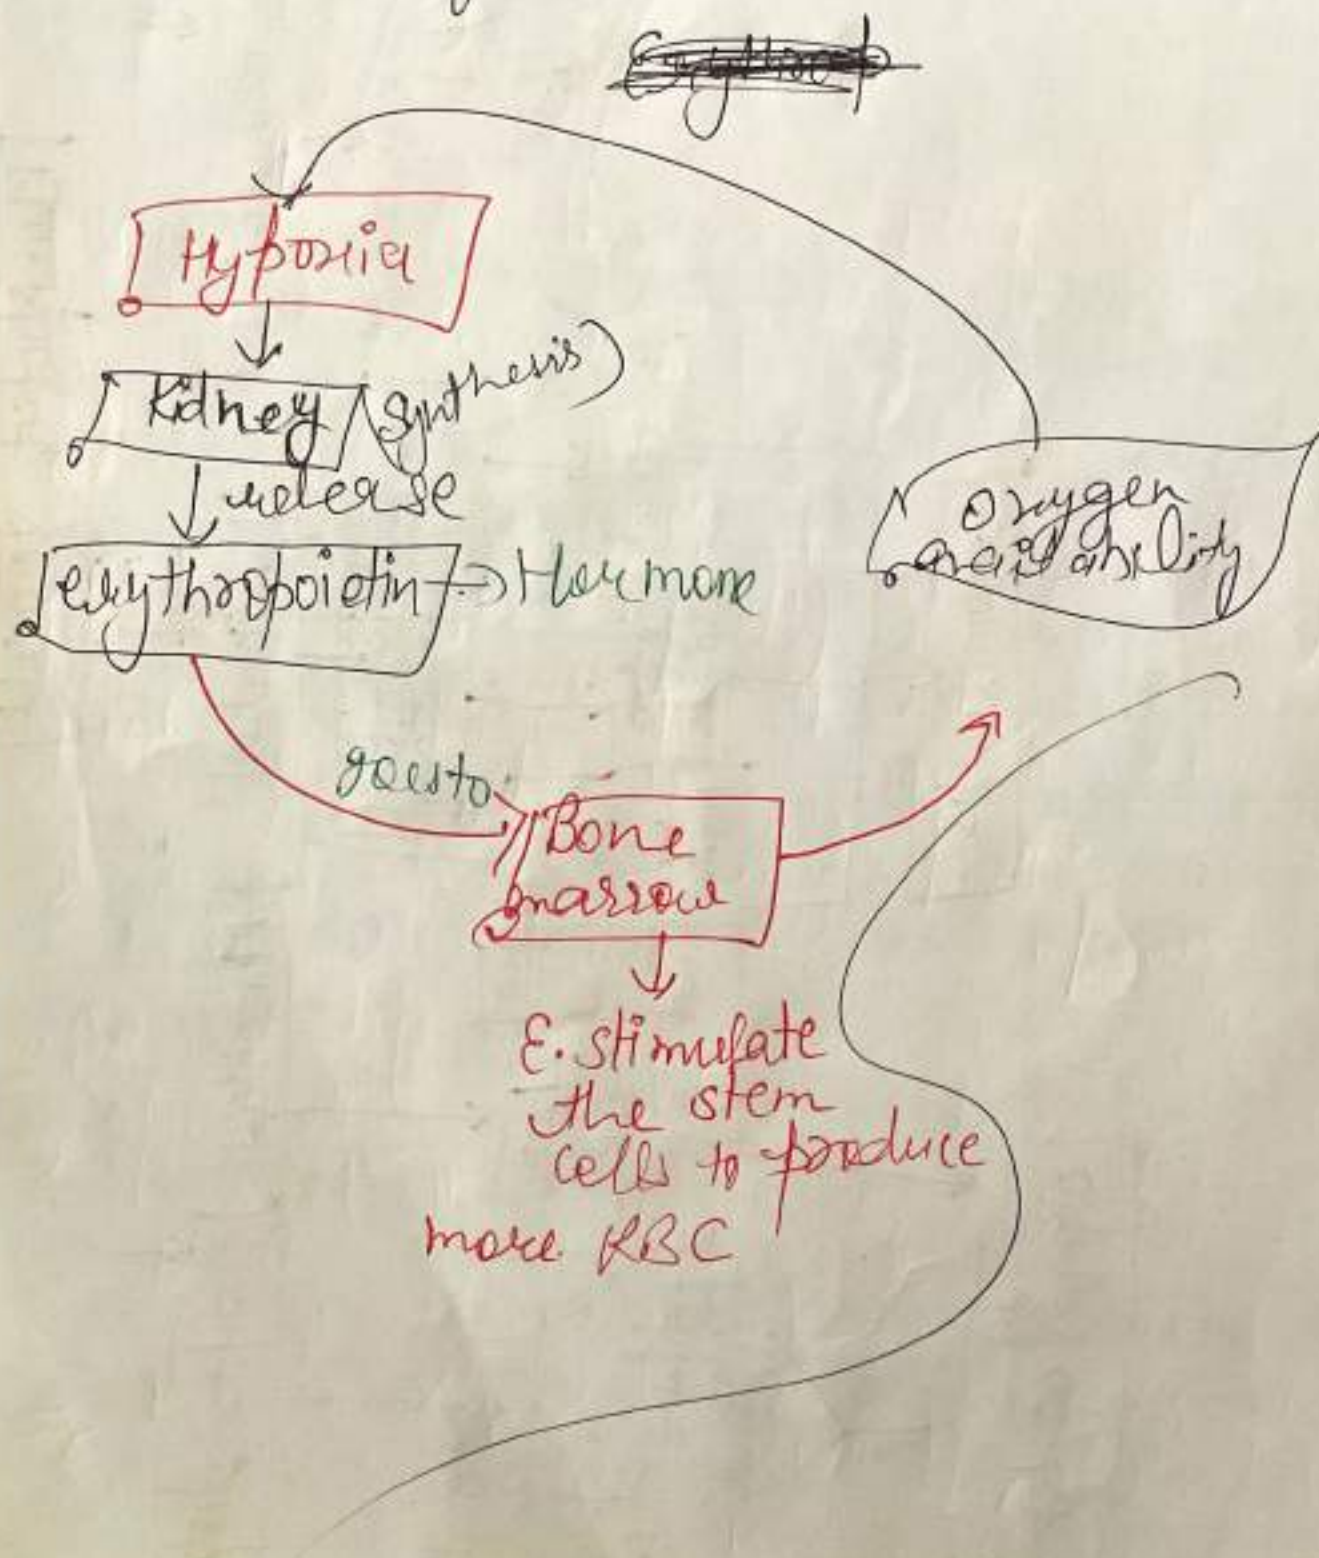 Hypoxia
Kidney (synthesis)
release
erythropoietin → Hormone
oxygen
availability
goes to
Bone
marrow
E. stimulate
the stem
cells to produce
more RBC